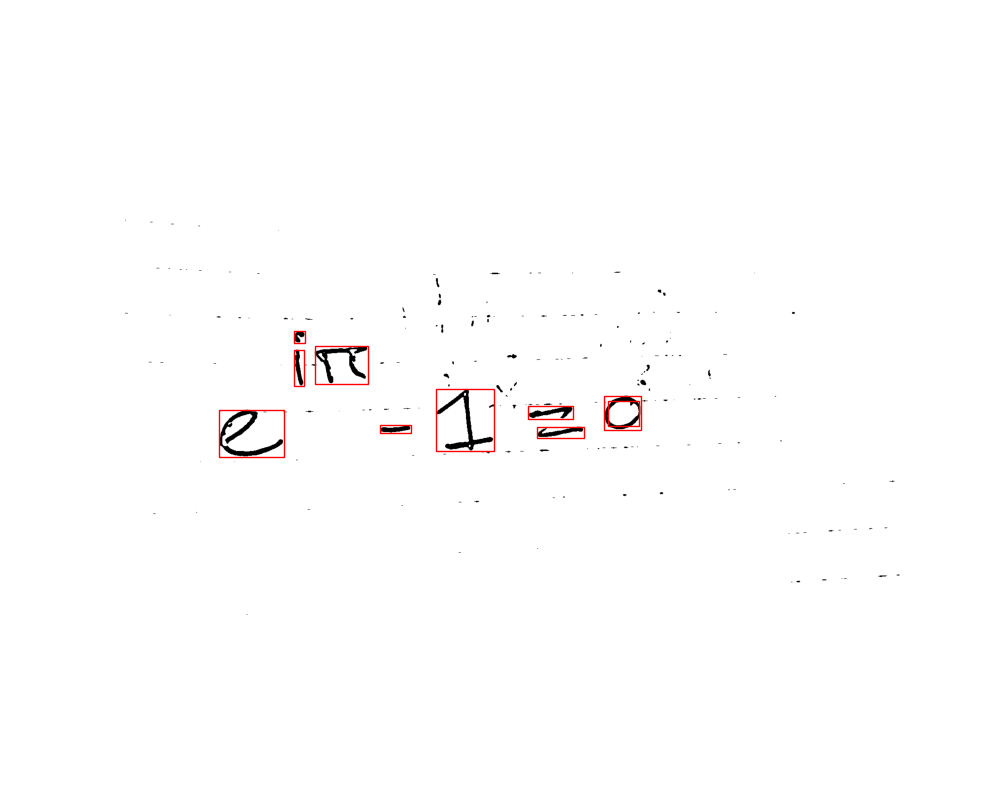 e^{iπ} - 1 = 0